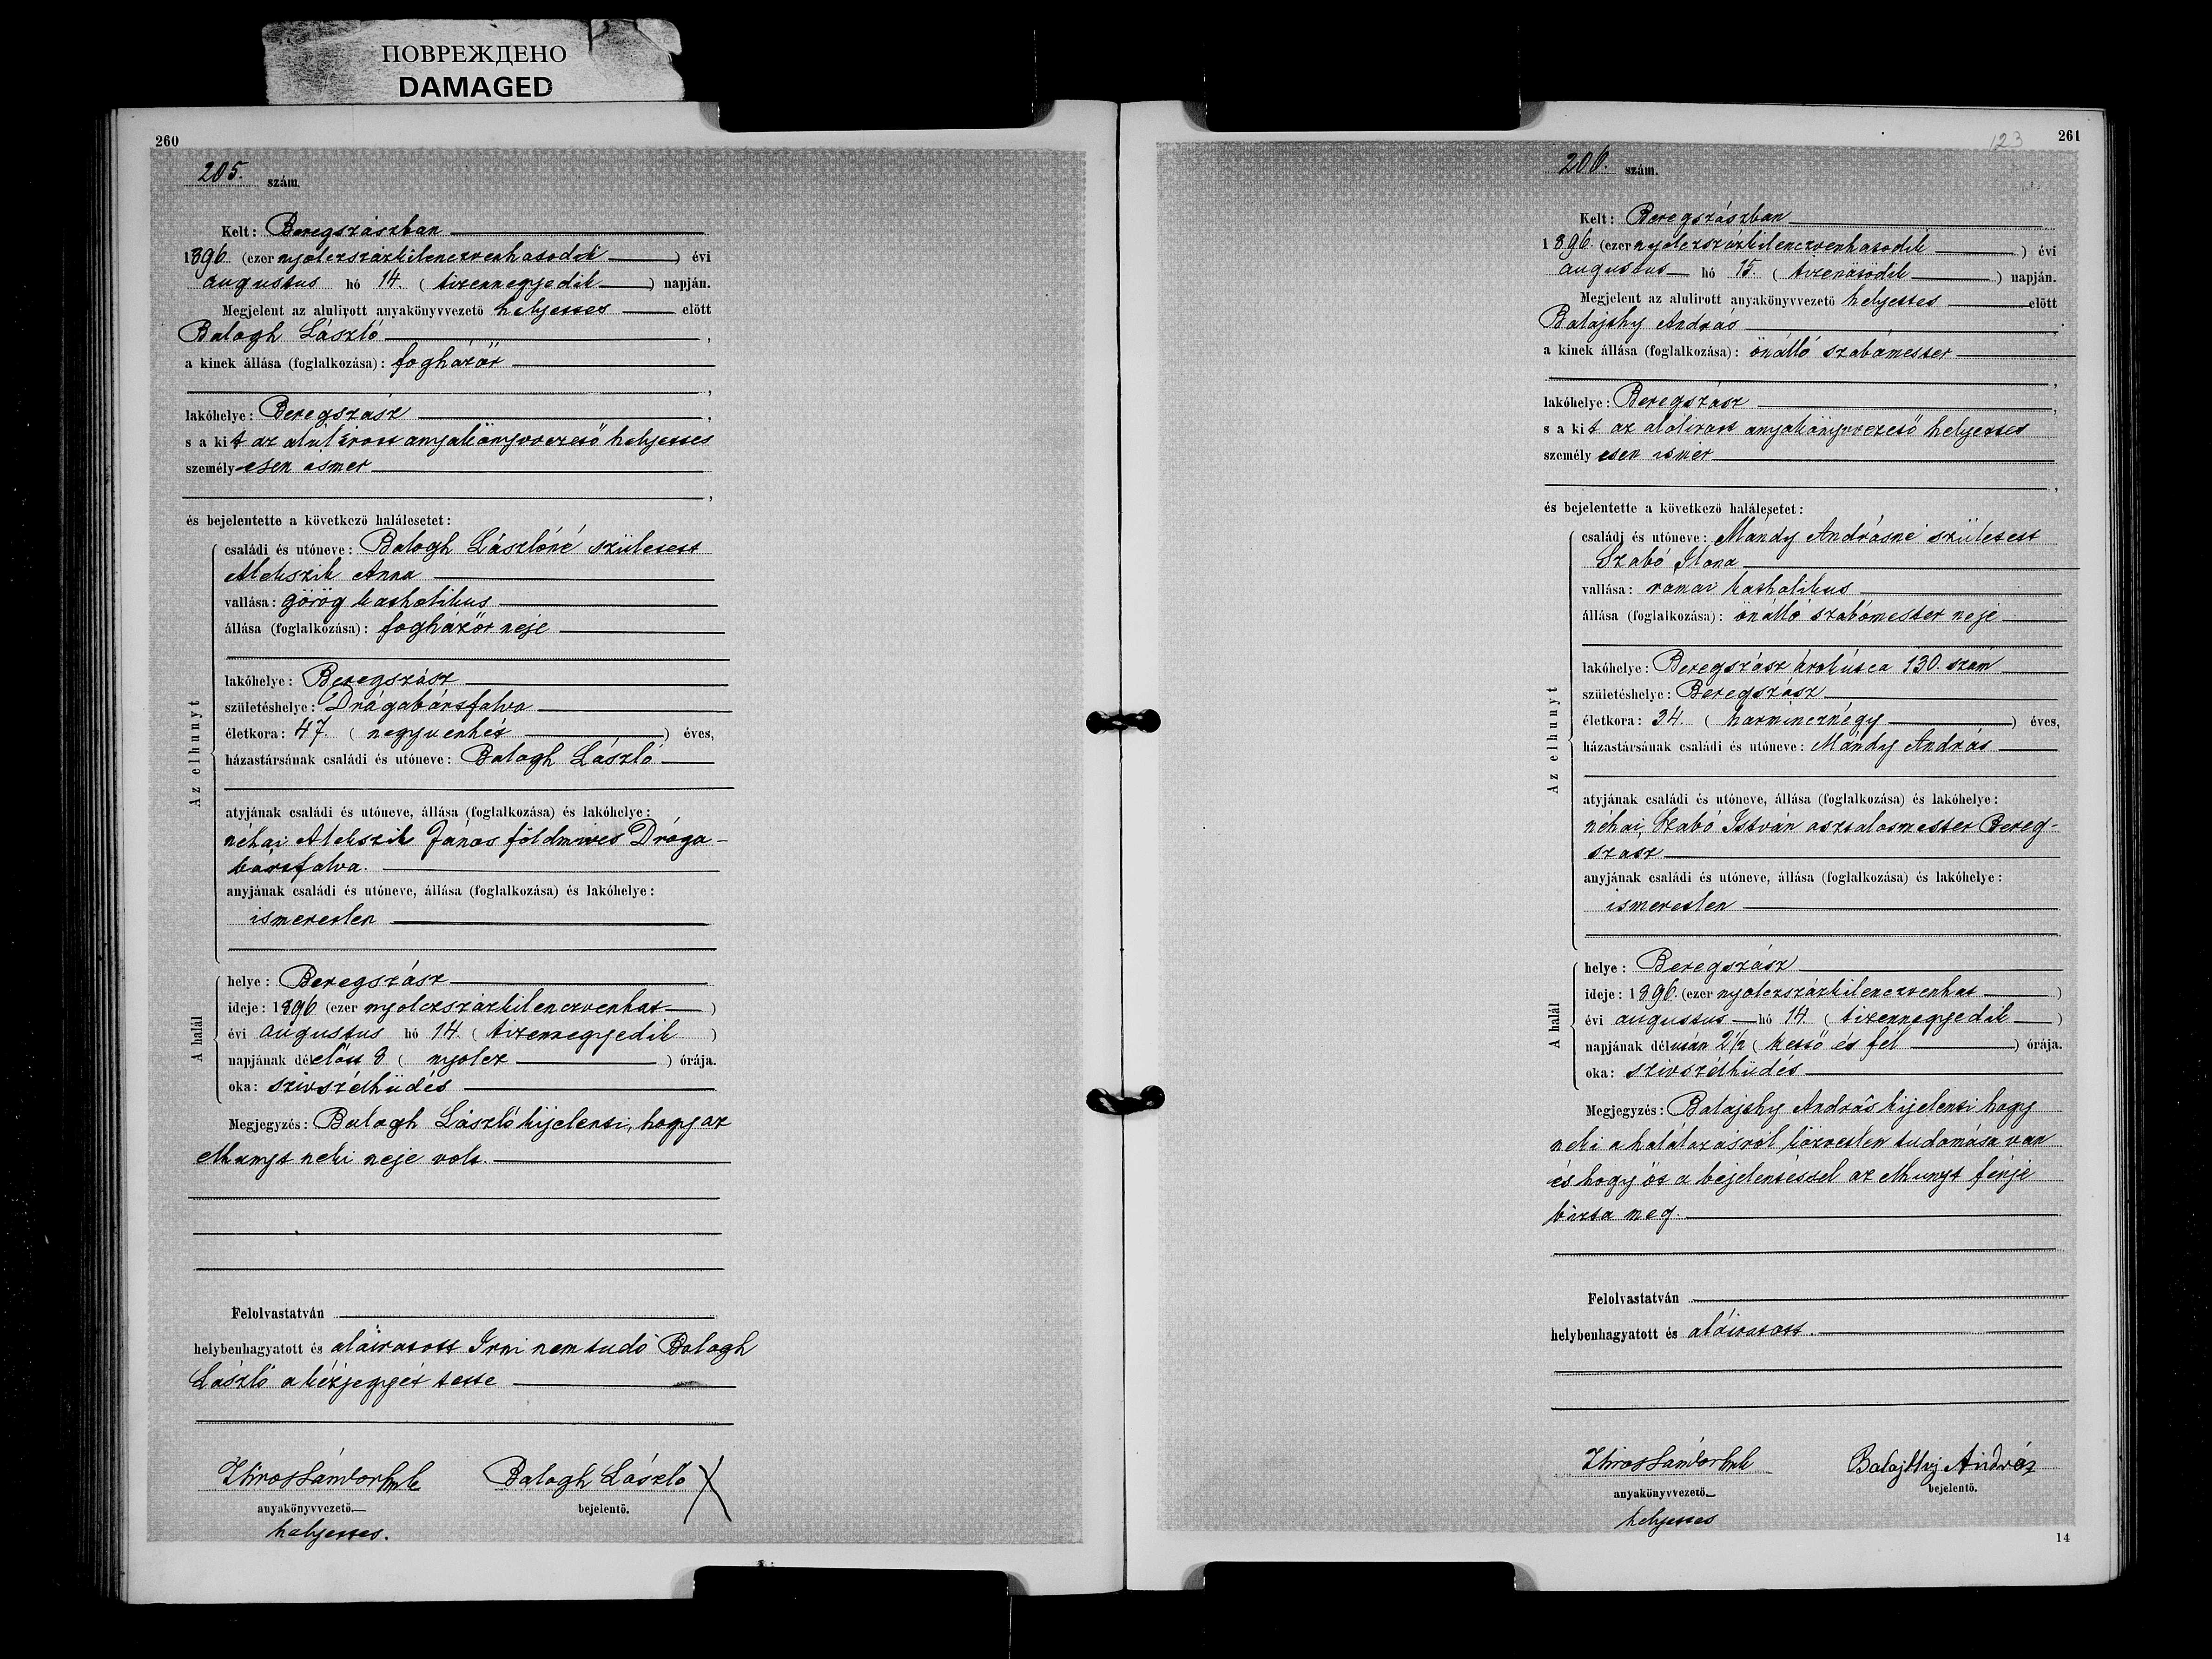 ПОВРЕЖДЕНО
DAMAGED
260
205. szám.
Kelt: Beregszászban
1896. (ezer nyolczszázkilenczvenhatodik) évi
augustus hó 14. (tizennegyedik) napján.
Megjelent az alulirott anyakönyvvezető helyettes előtt
Balogh László,
a kinek állása (foglalkozása): fogházőr
lakóhelye: Beregszász,
s a kit az alulirott anyakönyvvezető helyettes
személyesen ismer,
és bejelentette a következő halálesetet:
Az elhunyt
családi és utóneve: Balogh Lászlóné született
Alekszik Anna
vallása: görög katholikus
állása (foglalkozása): fogházőr neje
lakóhelye: Beregszász
születéshelye: Drágabártfalva
életkora: 47. (negyvenhét) éves,
házastársának családi és utóneve: Balogh László
atyjának családi és utóneve, állása (foglalkozása) és lakóhelye:
néhai Alekszik János földmives Drága-
bártfalva.
anyjának családi és utóneve, állása (foglalkozása) és lakóhelye:
ismeretlen
A halál
helye: Beregszász
ideje: 1896 (ezer nyolczszázkilenczvenhat)
évi augustus hó 14. (tizennegyedik)
napjának délelőtt 8 (nyolcz) órája.
oka: szivszélhüdés
Megjegyzés: Balogh László kijelenti, hogy az
elhunyt neki neje volt.
Felolvastatván
helybenhagyatott és aláiratott Irni nem tudó Balogh
László a kézjegyét tette
Balogh László X
anyakönyvvezető. bejelentő.
helyettes.
123 261
206. szám.
Kelt: Beregszászban
1896. (ezer nyolczszázkilenczvenhatodik) évi
augustus hó 15. (tizenötödik) napján.
Megjelent az alulirott anyakönyvvezető helyettes előtt
Balajthy András,
a kinek állása (foglalkozása): önálló szabómester
lakóhelye: Beregszász,
s a kit az alólirott anyakönyvvezető helyettes
személyesen ismer,
és bejelentette a következő halálesetet:
Az elhunyt
családi és utóneve: Mándy Andrásné született
Szabó Ilona
vallása: római katholikus
állása (foglalkozása): önálló szabómester neje
lakóhelye: Beregszász árokútca 130. szám
születéshelye: Beregszász
életkora: 34. (harmincznégy) éves,
házastársának családi és utóneve: Mándy András
atyjának családi és utóneve, állása (foglalkozása) és lakóhelye:
néhai, Szabó István asztalosmester Bereg-
szász
anyjának családi és utóneve, állása (foglalkozása) és lakóhelye:
ismeretlen
A halál
helye: Beregszász
ideje: 1896. (ezer nyolczszázkilenczvenhat)
évi augustus hó 14. (tizennegyedik)
napjának délután 2½ (kettő és fél) órája.
oka: szivszélhüdés
Megjegyzés: Balajthy András kijelenti hogy
neki a halálozásról közvetlen tudomása van
és hogy őt a bejelentéssel az elhunyt férje
bizta meg.
Felolvastatván
helybenhagyatott és aláiratott.
Balajthy András
anyakönyvvezető. bejelentő.
helyettes
14